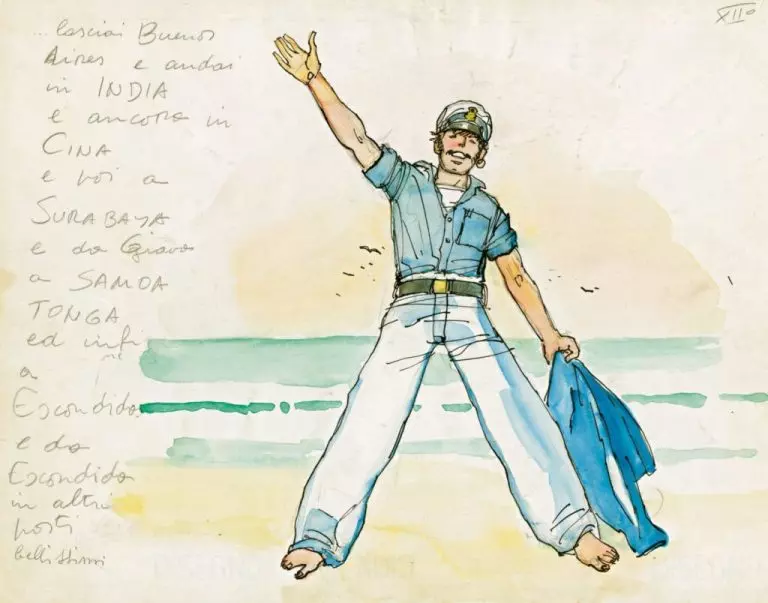 ... lasciai Buenos
Aires e andai
in INDIA
e ancora in
CINA
e poi a
SURABAYA
e da Giava
a SAMOA
TONGA
ed infi
ne
a
Escondida
e da
Escondida
in altri
posti
bellissimi
XII°